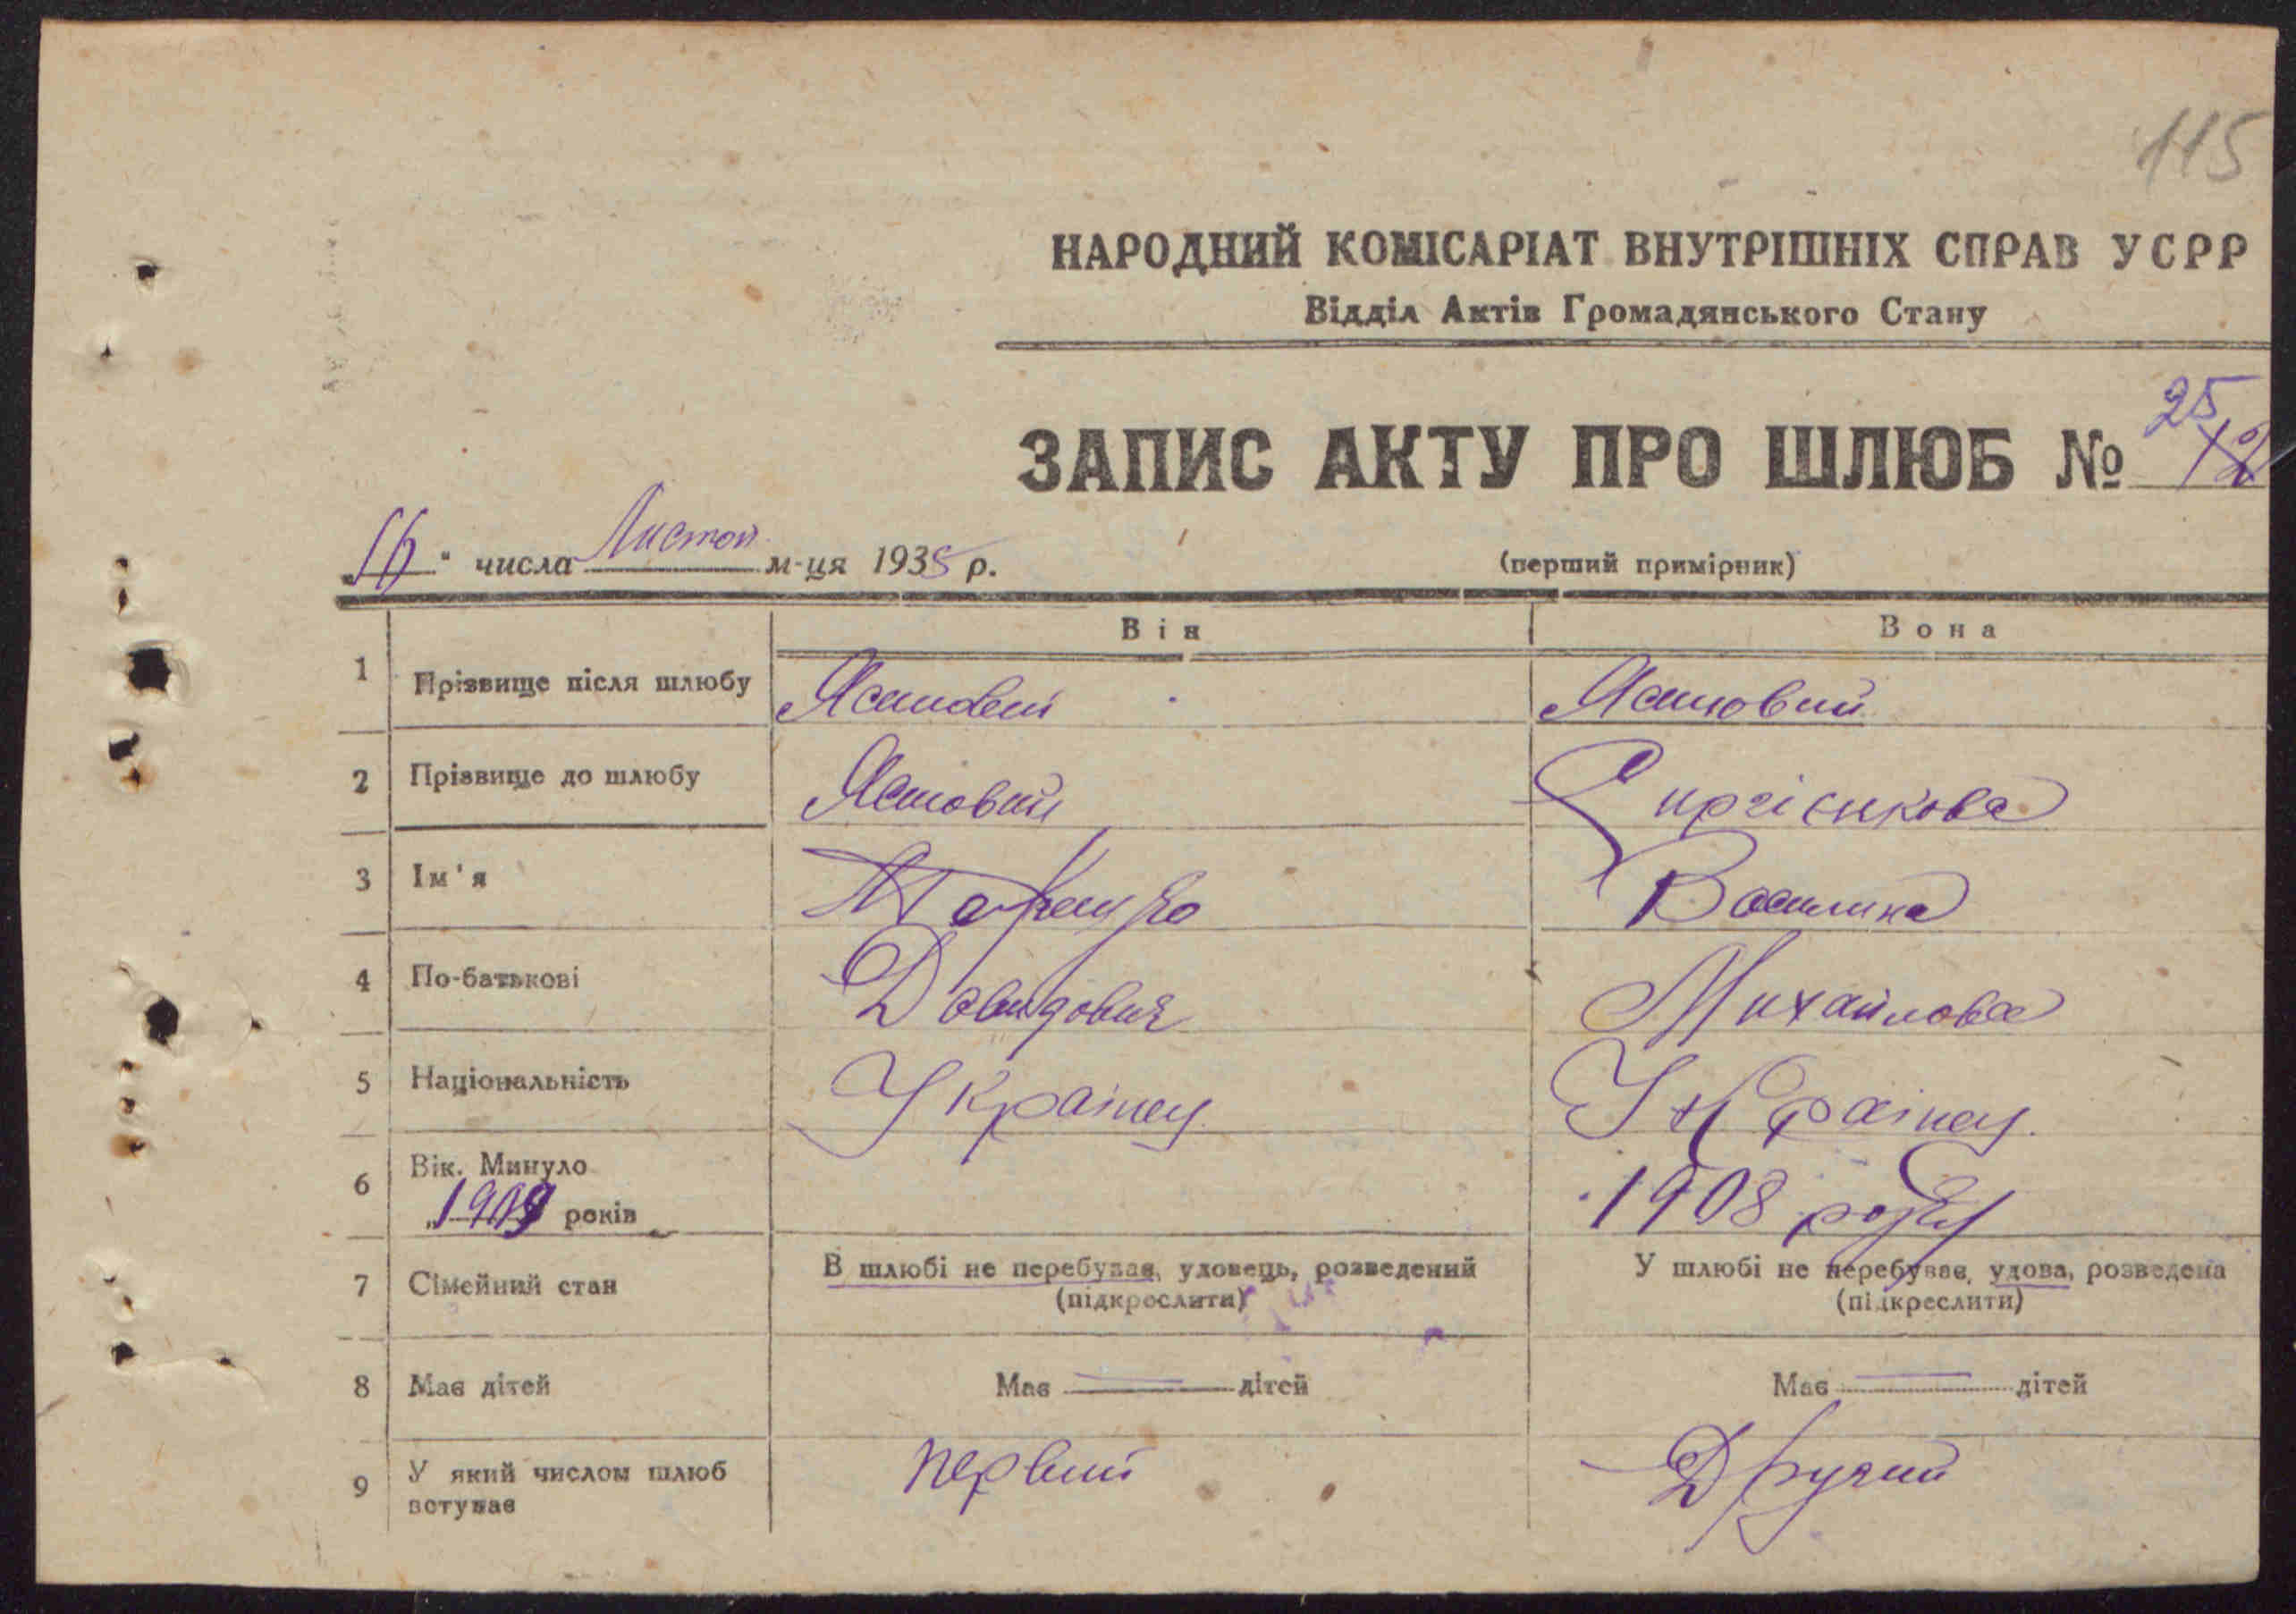 115
НАРОДНИЙ КОМІСАРІАТ ВНУТРІШНІХ СПРАВ УСРР
Відділ Актів Громадянського Стану
ЗАПИС АКТУ ПРО ШЛЮБ № 25/12
„16" числа Листоп м-ця 1935 р.
(перший примірник)
Він Вона
1 Прізвище після шлюбу Ясиновий Ясиновий
2 Прізвище до шлюбу Ясиновий
3 Ім'я Василина
4 По-батькові Давидович Михайлова
5 Національність Українец Українец
6 Вік. Минуло
„1909 років 1908 року
7 Сімейний стан В шлюбі не перебував, уловець, розведений У шлюбі не перебував, удова, розведена
(підкреслити) (підкреслити)
8 Має дітей Має дітей Має дітей
9 У який числом шлюб вступає первий Другий